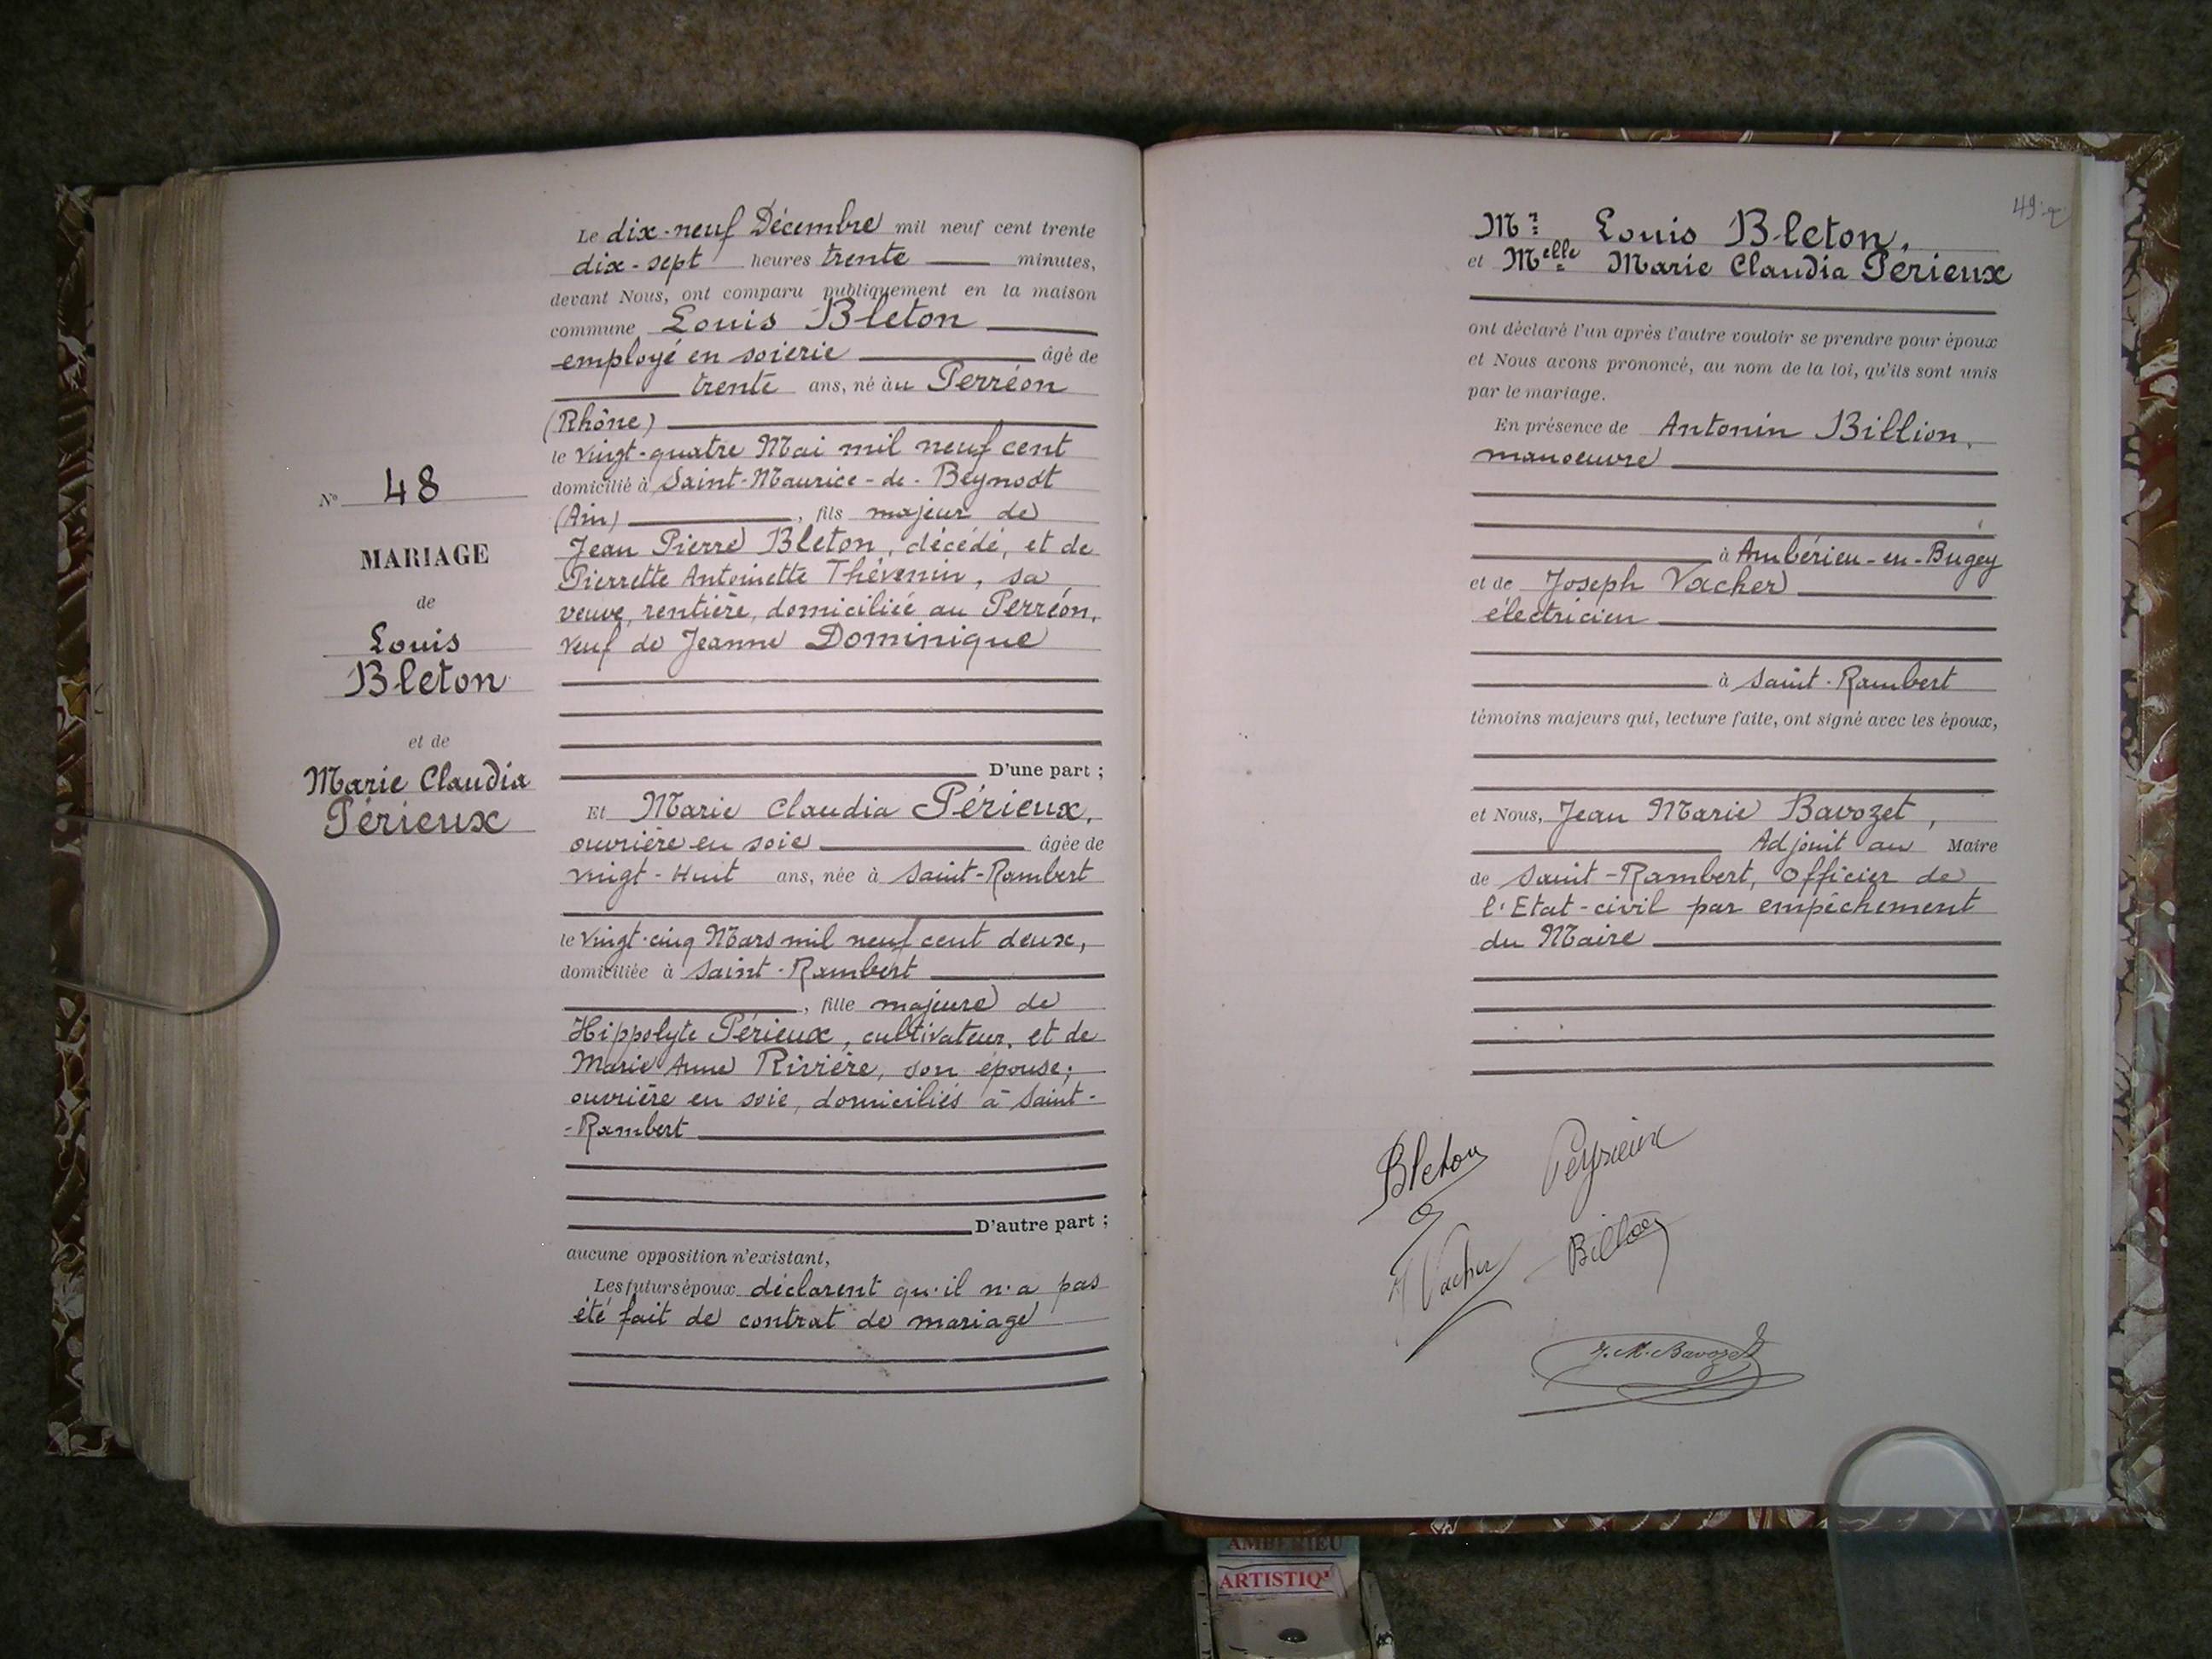 Le dix-neuf Décembre mil neuf cent trente
dix-sept heures trente minutes,
devant Nous, ont comparu publiquement en la maison
commune Louis Bleton
employé en soierie âgé de
trente ans, né àu Perréon
(Rhône)
le vingt-quatre Mai mil neuf cent
domicilié à Saint-Maurice-de-Beynost
(Ain), fils majeur de
Jean Pierre Bleton, décédé, et de
Pierrette Antoinette Thévenin, sa
veuve, rentière, domiciliée au Perréon,
veuf de Jeanne Dominique
D'une part ;
Et Marie Claudia Périeux,
ouvrière en soie âgée de
vingt-Huit ans, née à Saint-Rambert
le vingt-cinq Mars mil neuf cent deux,
domiciliée à Saint-Rambert
, fille majeure de
Hippolyte Périeux, cultivateur, et de
Marie Anne Rivière, son épouse,
ouvrière en soie, domiciliés à Saint-
-Rambert
D'autre part ;
aucune opposition n'existant,
Les futurs époux déclarent qu'il n'a pas
été fait de contrat de mariage
N° 48
MARIAGE
de
Louis
Bleton
et de
Marie Claudia
Périeux
49
Mr Louis Bleton,
et Melle Marie Claudia Perieux
ont déclaré l'un après l'autre vouloir se prendre pour époux
et Nous avons prononcé, au nom de la loi, qu'ils sont unis
par le mariage.
En présence de Antonin Billion,
manoeuvre
à Ambérieu-en-Bugey
et de Joseph Vacher
électricien
à Saint-Rambert
témoins majeurs qui, lecture faite, ont signé avec les époux,
et Nous, Jean Marie Bavozet,
Adjoint au Maire
de Saint-Rambert, Officier de
l'Etat-civil par empêchement
du Maire
Bleton Peyrieux
Vacher Billion
J. M. Bavozet
AMBERIEU
ARTISTIQ